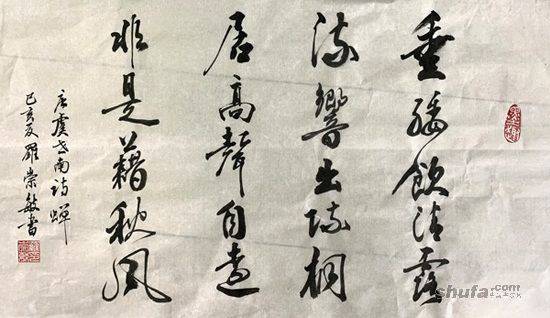 垂緌飲清露
流響出疏桐
居高聲自遠
非是藉秋風
唐虞世南詩蟬
己亥夏羅崇敏書